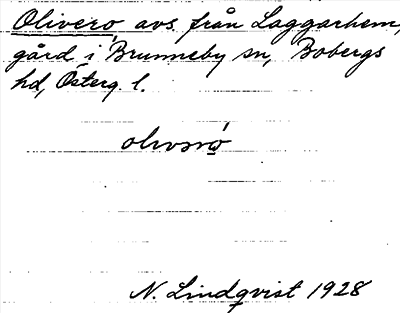 Olivero, avs. från Laggarhem,
gård i Brunneby sn, Bobergs
hd, Österg. l.
olivəró
N. Lindqvist 1928